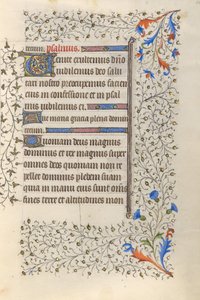 tecum. psalmus.
Venite exultemus dño
iubilemus deo salu
tari nostro preoccupemus facien
eius in confessione et in psal
mis iubilemus ei.
Aue maria gracia plena domin
tecum.
Quoniam deus magnus
dominus et rex magnus super
omnes deos quoniam non re
pellet dominus plebem suam
quia in manu eius sunt oñs
fines terre et altitudines mon